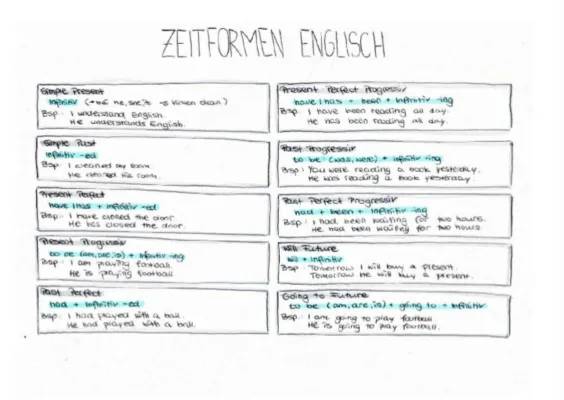 ZEITFORMEN ENGLISCH
Simple Present
Infinitiv (+ bei he, she, it -s hinten dran)
Bsp.: I understand English.
He understands English.
Simple Past
Infinitiv -ed
Bsp.: I cleaned my room.
He cleaned his room.
Present Perfect
have / has + Infinitiv -ed
Bsp.: I have closed the door.
He has closed the door.
Present Progressiv
to be (am, are, is) + Infinitiv -ing
Bsp.: I am playing football.
He is playing football.
Past Perfect
had + Infinitiv -ed
Bsp.: I had played with a ball.
He had played with a ball.
Present Perfect Progressiv
have / has + been + Infinitiv -ing
Bsp.: I have been reading all day.
He has been reading all day.
Past Progressiv
to be (was, were) + Infinitiv -ing
Bsp.: You were reading a book yesterday.
He was reading a book yesterday.
Past Perfect Progressiv
had + been + Infinitiv -ing
Bsp.: I had been waiting for two hours.
He had been waiting for two hours.
Will Future
will + Infinitiv
Bsp.: Tomorrow I will buy a present.
Tomorrow he will buy a present.
Going to Future
to be (am, are, is) + going to + Infinitiv
Bsp.: I am going to play football.
He is going to play football.